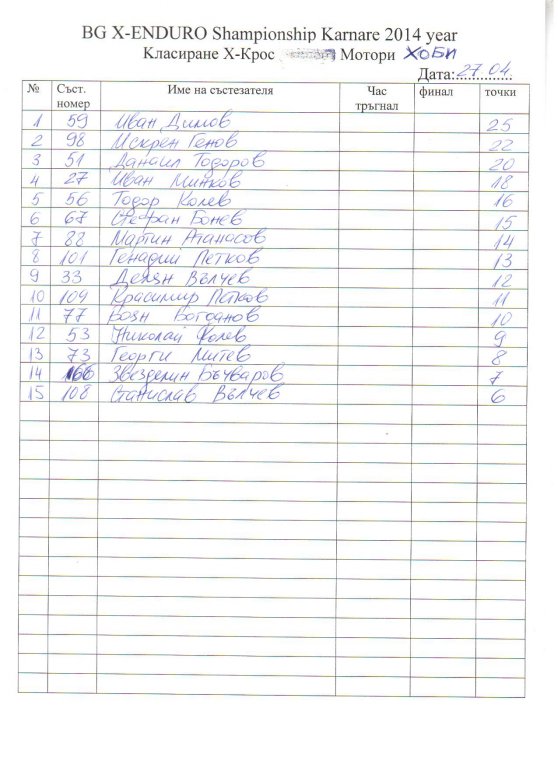 BG X-ENDURO Shampionship Karnare 2014 year
Класиране Х-Крос Мотори ХОБИ
Дата: 27.04.
№ Съст. номер Име на състезателя Час тръгнал финал точки
1 59 Иван Димов 25
2 98 Искрен Генов 22
3 51 Данаил Тодоров 20
4 27 Иван Минков 18
5 56 Тодор Колев 16
6 67 Стефан Бонев 15
7 88 Мартин Атанасов 14
8 101 Генадии Петков 13
9 33 Деян Вълчев 12
10 104 Красимир Петков 11
11 77 Боян Богданов 10
12 53 Николай Колев 9
13 73 Георги Митев 8
14 166 Звезделин Бъчваров 7
15 108 Станислав Вълчев 6